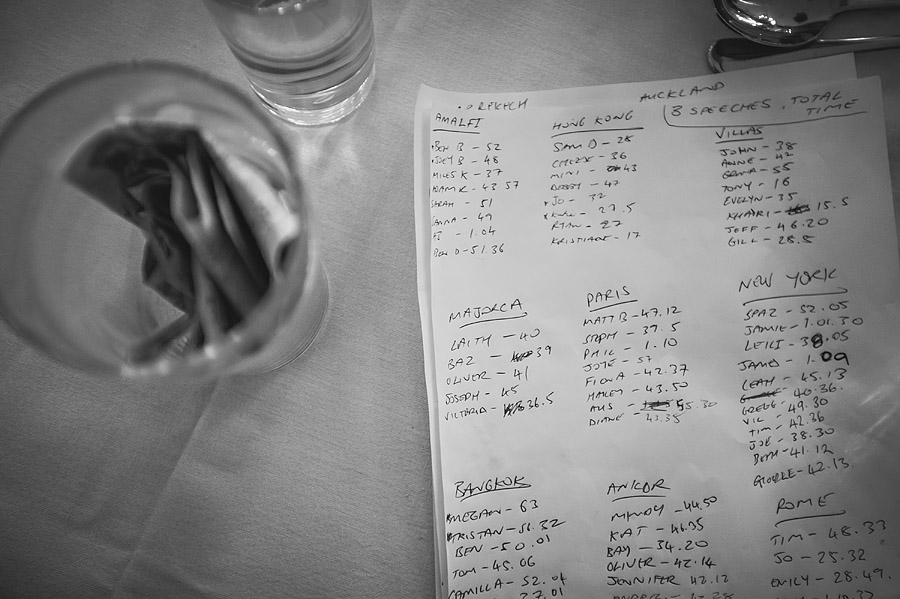 AUCKLAND
3 SPEECHES, TOTAL TIME
AMALFI
BEN B - 52
JOEY B - 48
MILES K - 37
ADAM K - 43 57
SARAH - 51
- 49
- 1.04
BEN D - 51.36
HONG KONG
SAM D - 28
CHEESE - 36
MINI - 43
DEBBY - 47
JO - 32
- 27.5
RYAN - 27
KRISTIANE - 17
VILLAS
JOHN - 38
ANNE - 42
GEMMA - 55
TONY - 16
EVELYN - 35
KHAIRI - 15.5
JEFF - 46.20
GILL - 28.5
MAJORCA
LAITH - 40
BAZ - 39
OLIVER - 41
JOSEPH - 45
VICTORIA - 36.5
PARIS
MATT B - 47.12
STEPH - 37.5
PHIL - 1.10
- 57
FIONA - 42.37
HAILEY - 43.50
AUS - 55.30
DIANE - 43.35
NEW YORK
SPAZ - 52.05
JAMIE - 1.01.30
LEILI - 38.05
JAMES - 1.09
LEAH - 45.13
GREGG - 40.36.
VIC - 49.30
TIM - 42.36
JOE - 38.30
BETH - 41.12
GEORGE - 42.13.
BANGKOK
MEGAN - 63
TRISTAN - 51.32
BEN - 50.01
TOM - 45.06
CAMILLA - 52.04
27.01
ANKOR
MINDY - 44.50
KAT - 46.35
BAY - 34.20
OLIVER - 42.14
JENNIFER 42.12
ROME
TIM - 48.33
JO - 25.32
EMILY - 28.49.